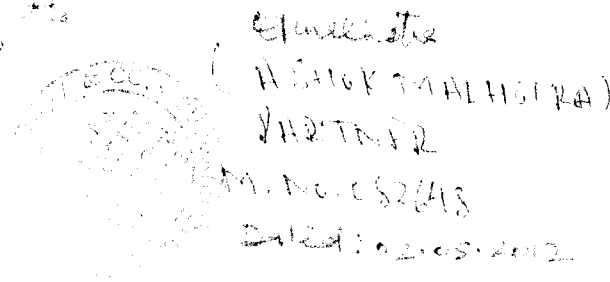 (ASHOK MALHOTRA)
PARTNER
M. No. 082648
Dated: 02.05.2012